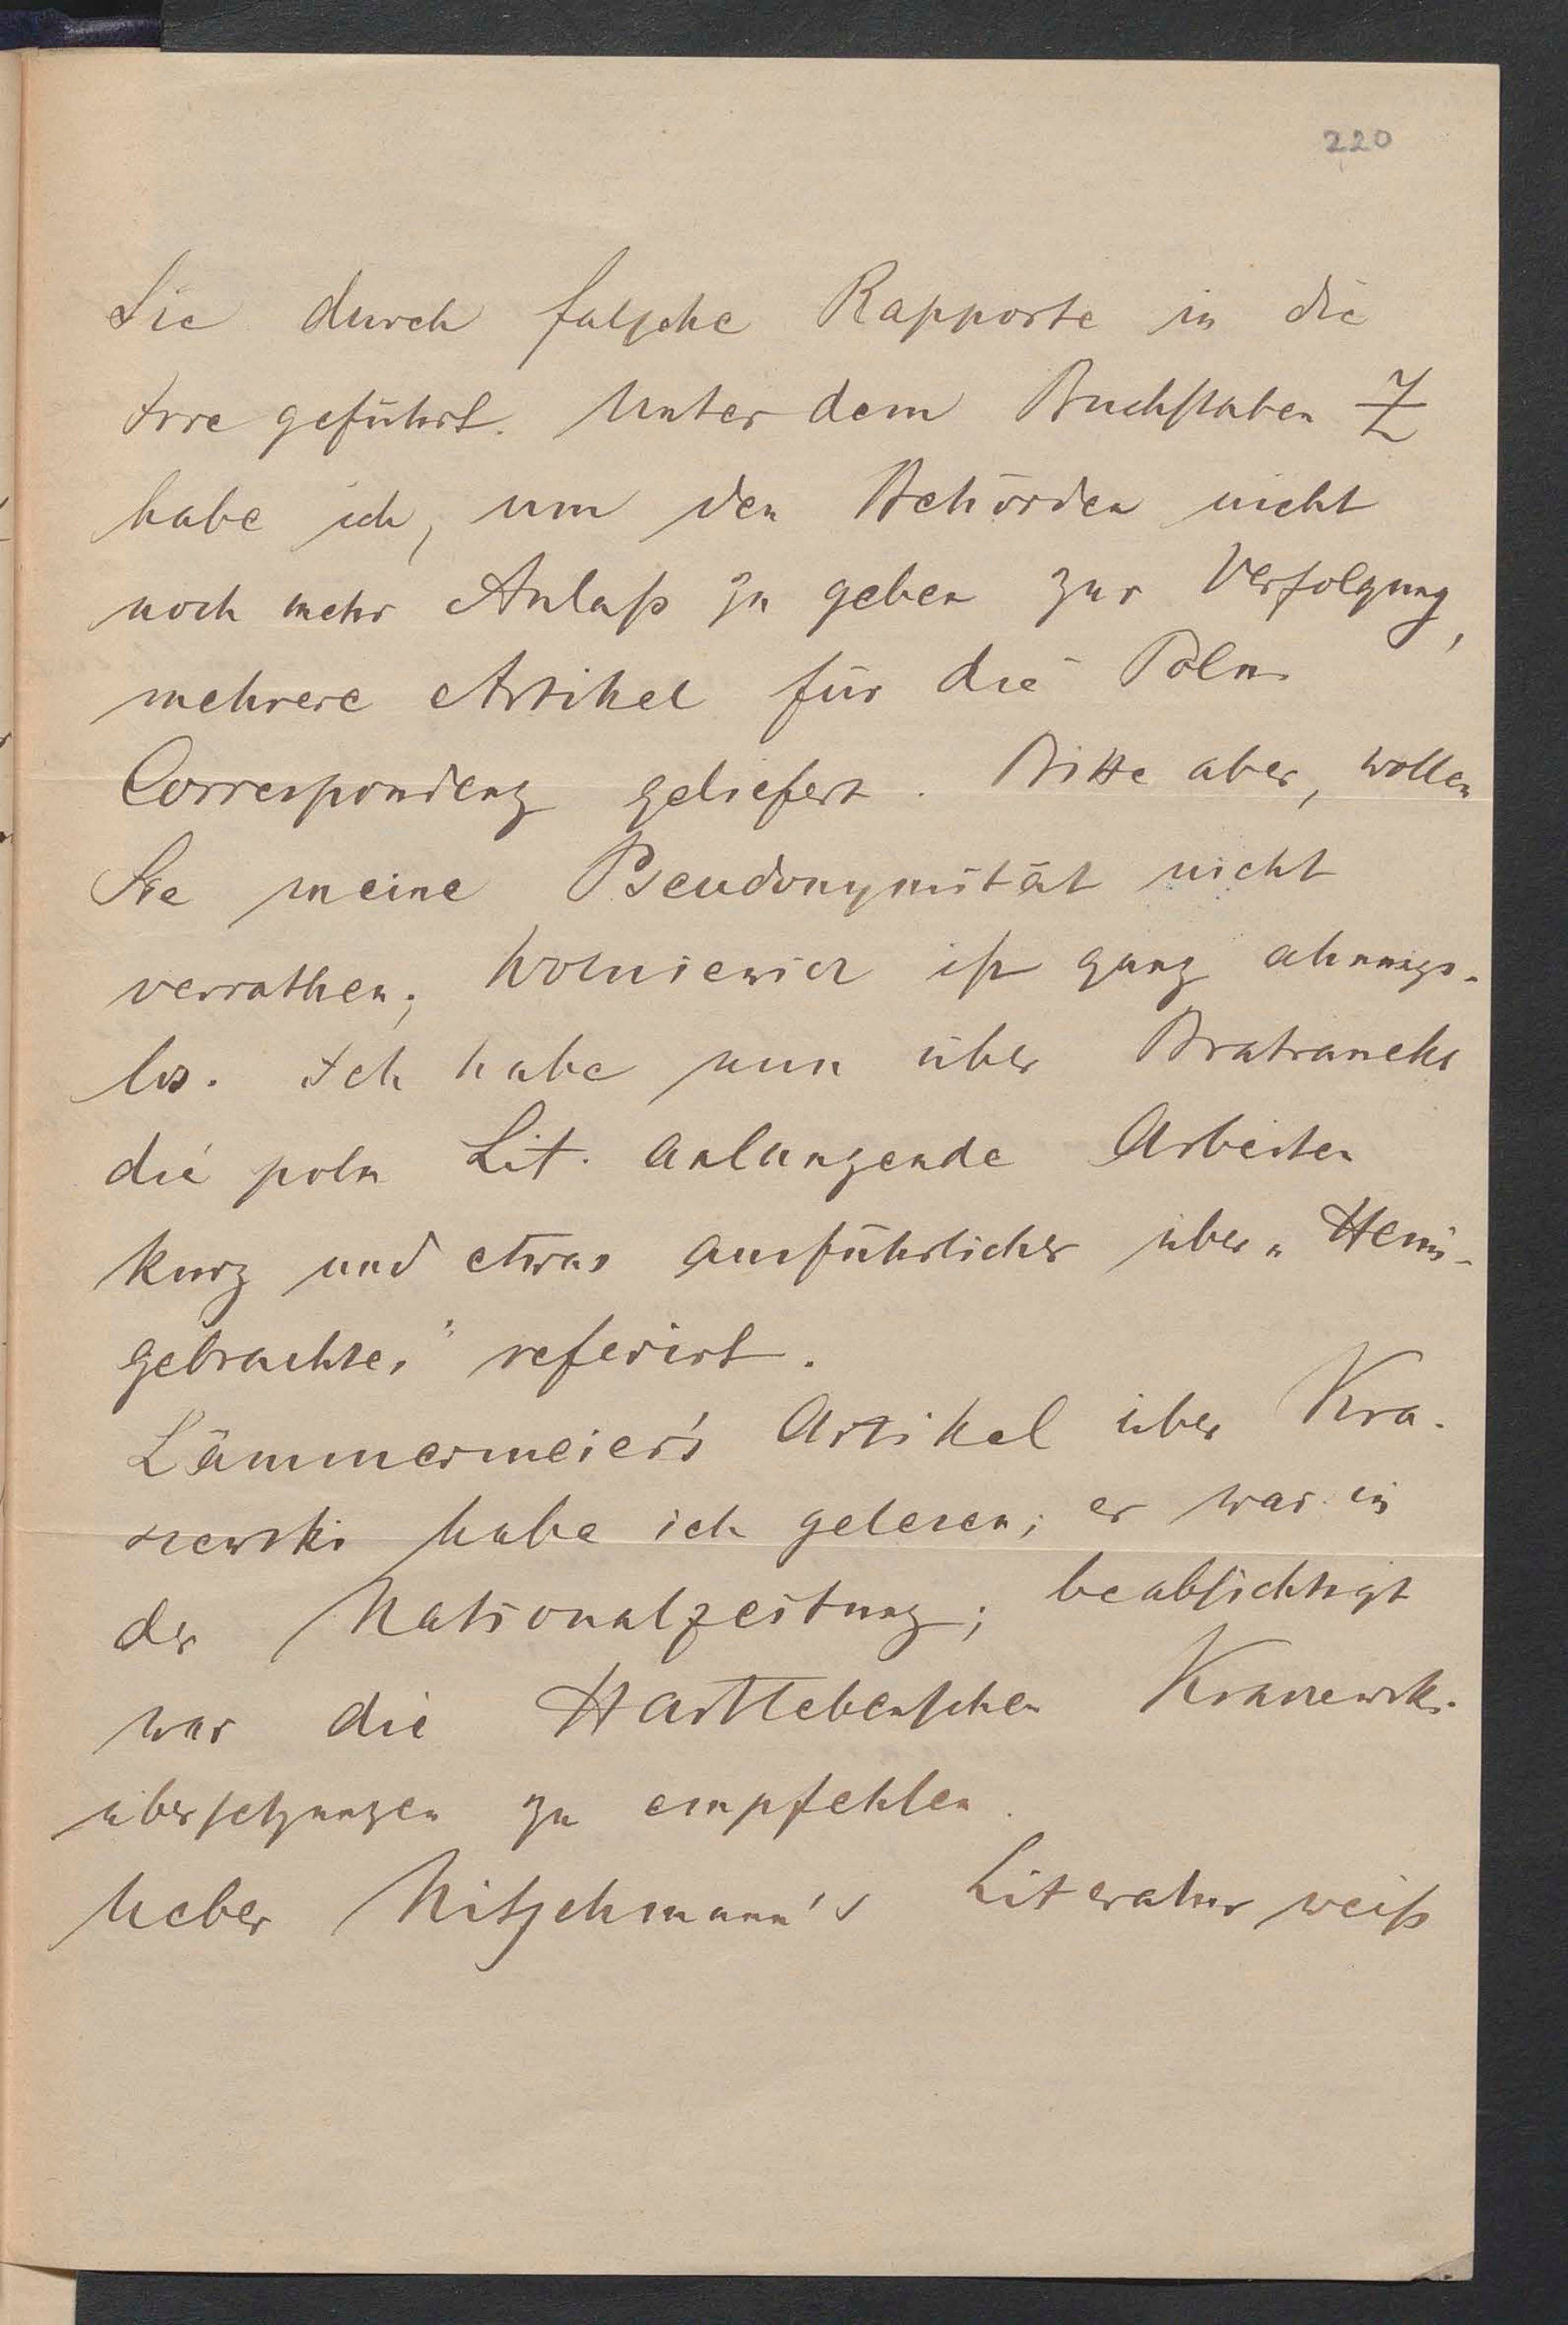 220
Sie durch falsche Rapporte in die
Irre geführt. Unter dem Buchstaben Z
habe ich, um den Behörden nicht
noch mehr Anlaß zu geben zur Verfolgung,
mehrere Artikel für die Poln.
Correspondenz geliefert. Bitte aber, wollen
Sie meine Pseudonymität nicht
verrathen; Wolniewicz ist ganz ahnungs-
los. Ich habe nun über Bratraneks
die poln Lit. anlangende Arbeiten
kurz und etwas ausführlicher über „Heim-
gebrachtes" referirt.
Lämmermeier's Artikel über Kra-
szewski habe ich gelesen; er war in
der Nationalzeitung; beabsichtigt
war die Hartlebenschen Kraszewski-
übersetzungen zu empfehlen.
Ueber Nitschmann's Literatur weiß